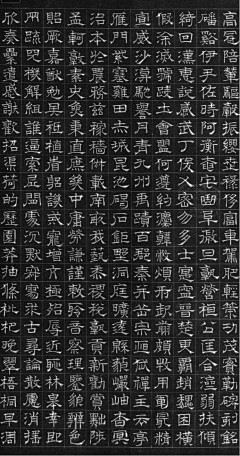 高冠陪輦驅轂振纓世祿侈富車駕肥輕策功茂實勒碑刻銘
磻溪伊尹佐時阿衡奄宅曲阜微旦孰營桓公匡合濟弱扶傾
綺回漢惠說感武丁俊乂密勿多士寔寧晉楚更霸趙魏困橫
假途滅虢踐土會盟何遵約法韓弊煩刑起翦頗牧用軍最精
宣威沙漠馳譽丹青九州禹跡百郡秦并嶽宗恆岱禪主云亭
雁門紫塞雞田赤城昆池碣石鉅野洞庭曠遠綿邈巖岫杳冥
治本於農務茲稼穡俶載南畝我藝黍稷稅熟貢新勸賞黜陟
孟軻敦素史魚秉直庶幾中庸勞謙謹敕聆音察理鑑貌辨色
貽厥嘉猷勉其祗植省躬譏誡寵增抗極殆辱近恥林皋幸即
兩疏見機解組誰逼索居閒處沉默寂寥求古尋論散慮逍遙
欣奏累遣慼謝歡招渠荷的歷園莽抽條枇杷晚翠梧桐早凋